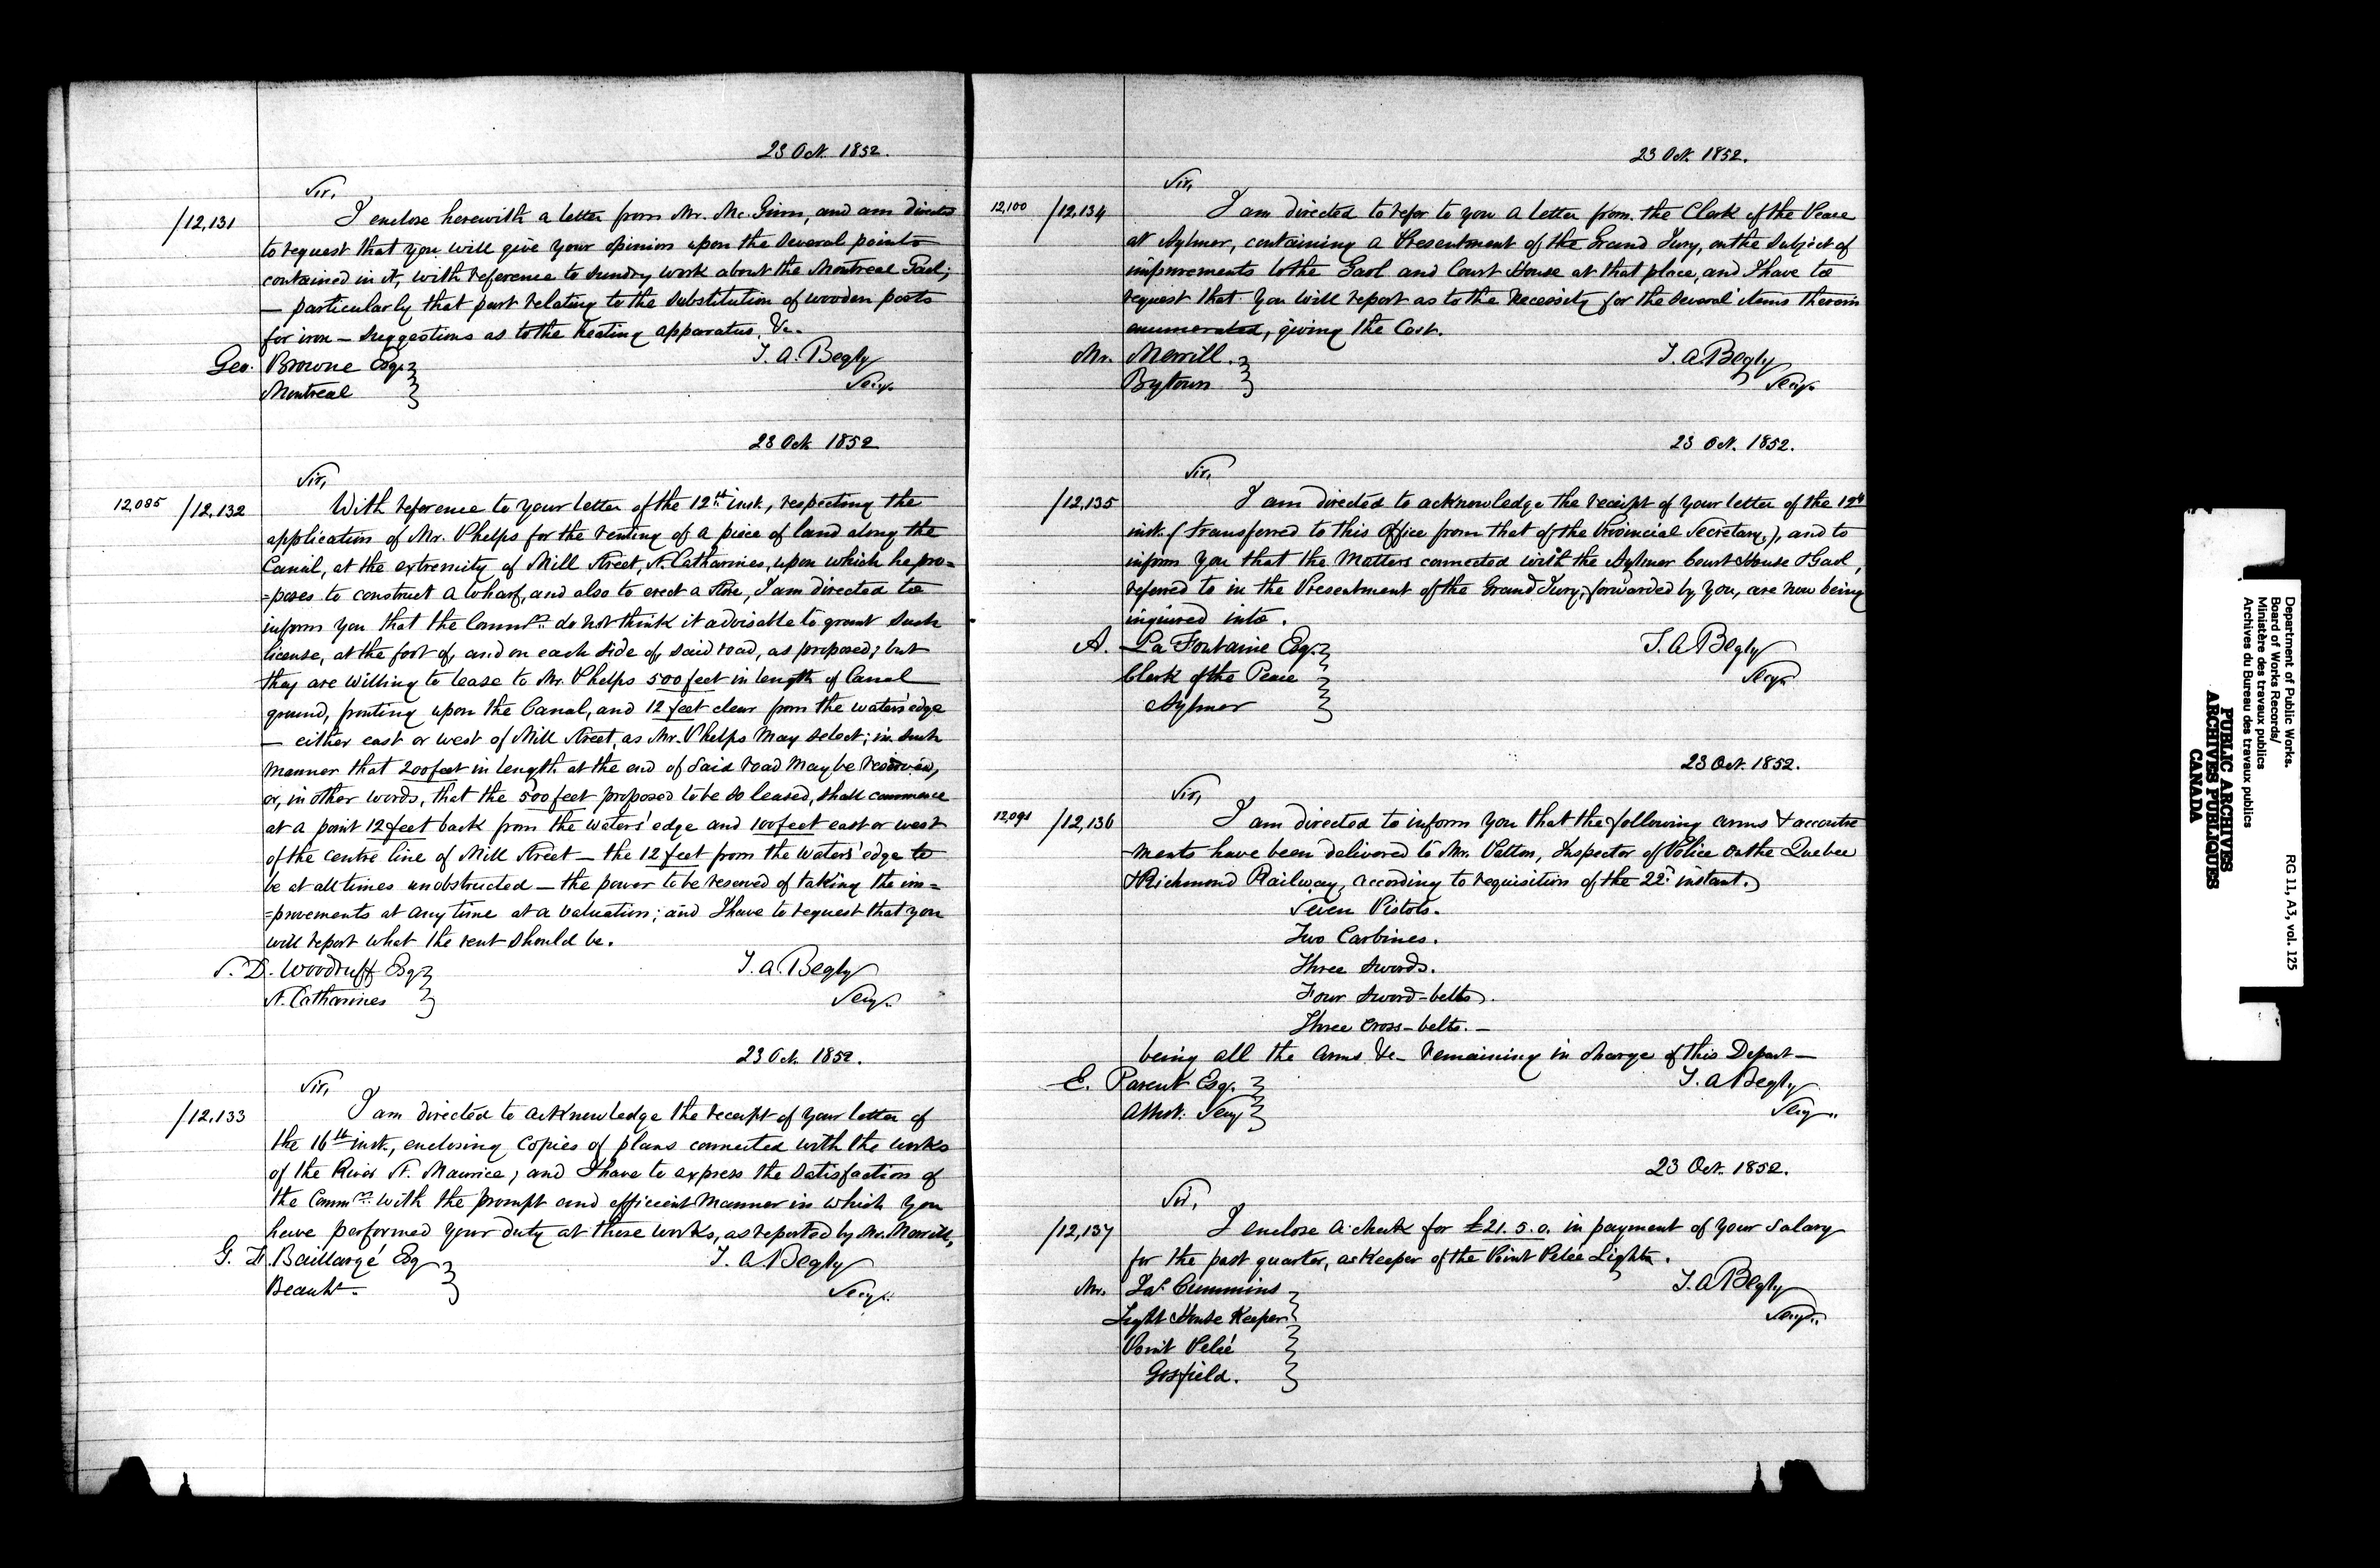 23 Oct. 1852.
Sir,
/12,131 I enclose herewith a letter from Mr. Mc.Ginn, and am directed
to request that you will give your opinion upon the several points
contained in it, with reference to sundry work about the Montreal Gaol;
— particularly that part relating to the substitution of wooden posts
for iron — suggestions as to the heating apparatus, &c.
Geo. Browne Esq. T. A. Begly
Montreal Secy.
23 Oct 1852
Sir,
12,085 /12,132 With reference to your letter of the 12th inst., respecting the
application of Mr. Phelps for the renting of a piece of land along the
Canal, at the extremity of Mill Street, St. Catharines, upon which he pro=
=poses to construct a wharf, and also to erect a Store, I am directed to
inform you that the Commrs. do not think it advisable to grant such
license, at the foot of, and on each side of, said road, as proposed; but
they are willing to lease to Mr. Phelps 500 feet in length of Canal
ground, fronting upon the Canal, and 12 feet clear from the waters' edge
— either east or west of Mill Street, as Mr. Phelps may select; in such
manner that 200 feet in length at the end of said road may be reserved,
or, in other words, that the 500 feet proposed to be so leased, shall commence
at a point 12 feet back from the waters' edge and 100 feet east or west
of the centre line of Mill Street — the 12 feet from the waters' edge to
be at all times unobstructed — the power to be reserved of taking the im=
=provements at any time at a valuation; and I have to request that you
will report what the rent should be.
S. D. Woodruff Esq T. A. Begly
St. Catharines Secy.
23 Oct. 1852.
Sir,
/12,133 I am directed to acknowledge the receipt of your letter of
the 16th inst., enclosing copies of plans connected with the works
of the River St. Maurice; and I have to express the satisfaction of
the Commrs. with the prompt and efficient manner in which you
have performed your duty at these works, as reported by Mr. Merrill,
G. F. Baillargé Esq T. A. Begly
Beauht. Secy.
23 Oct. 1852.
Sir,
12,100 /12,134 I am directed to refer to you a letter from the Clerk of the Peace
at Aylmer, containing a Presentment of the Grand Jury, on the subject of
improvements to the Gaol and Court House at that place, and I have to
request that you will report as to the necessity for the several items therein
enumerated, giving the Cost.
Mr. Merrill. T. A. Begly
Bytown Secy.
23 Oct. 1852.
Sir,
/12,135 I am directed to acknowledge the receipt of your letter of the 12th
inst. (transferred to this Office from that of the Provincial Secretary,), and to
inform you that the matters connected with the Aylmer Court House & Gaol,
referred to in the Presentment of the Grand Jury, forwarded by you, are now being
inquired into.
A. La Fontaine Esq. T. A. Begly
Clerk of the Peace Secy.
Aylmer
23 Oct. 1852.
Sir,
12,091 /12,136 I am directed to inform you that the following arms & accoutre
ments have been delivered to Mr. Patton, Inspector of Police on the Quebec
& Richmond Railway, according to requisition of the 22d instant.
Seven Pistols.
Two Carbines.
Three swords.
Four sword-belts.
Three cross-belts. —
being all the arms &c — remaining in charge of this Depart —
E. Parent Esq. T. A Begly
Assist. Secy Secy.
23 Oct. 1852.
Sir,
/12,137 I enclose a check for £21. 5. 0. in payment of your salary
for the past quarter, as Keeper of the Point Pelée Light.
Mr. Jas. Cummins T. A Begly
Light House Keeper Secy.
Point Pelée
Gosfield.
Department of Public Works.
Board of Works Records/
Ministère des travaux publics
Archives du Bureau des travaux publics
RG 11, A3, vol. 125
PUBLIC ARCHIVES
ARCHIVES PUBLIQUES
CANADA